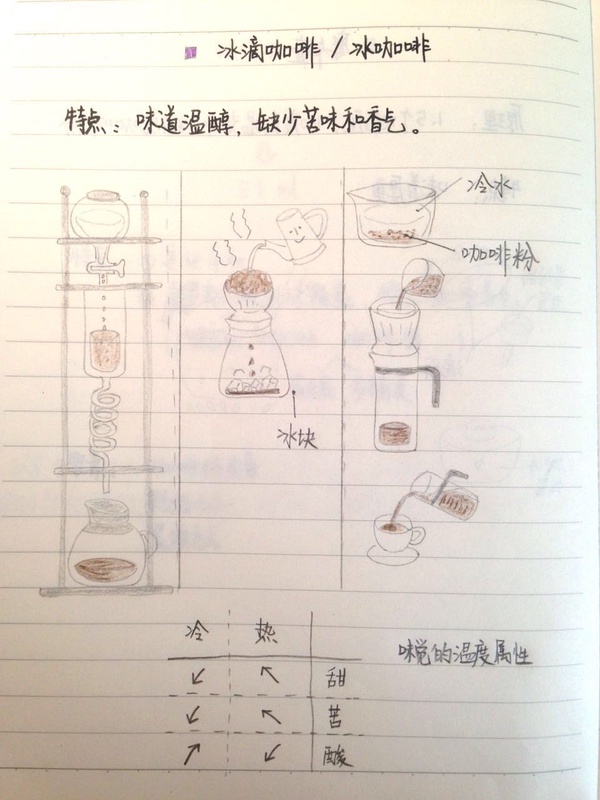 冰滴咖啡 / 冰咖啡
特点：味道温醇，缺少苦味和香气。
冷水
咖啡粉
冰块
冷 热
味觉的温度属性
↙ ↖ 甜
↙ ↖ 苦
↗ ↙ 酸